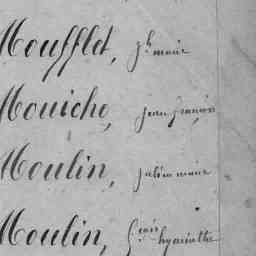 Moufflet, Jh marie
Mouiche, jean françois
Moulin, julien marie
Moulin, fçois hyacinthe